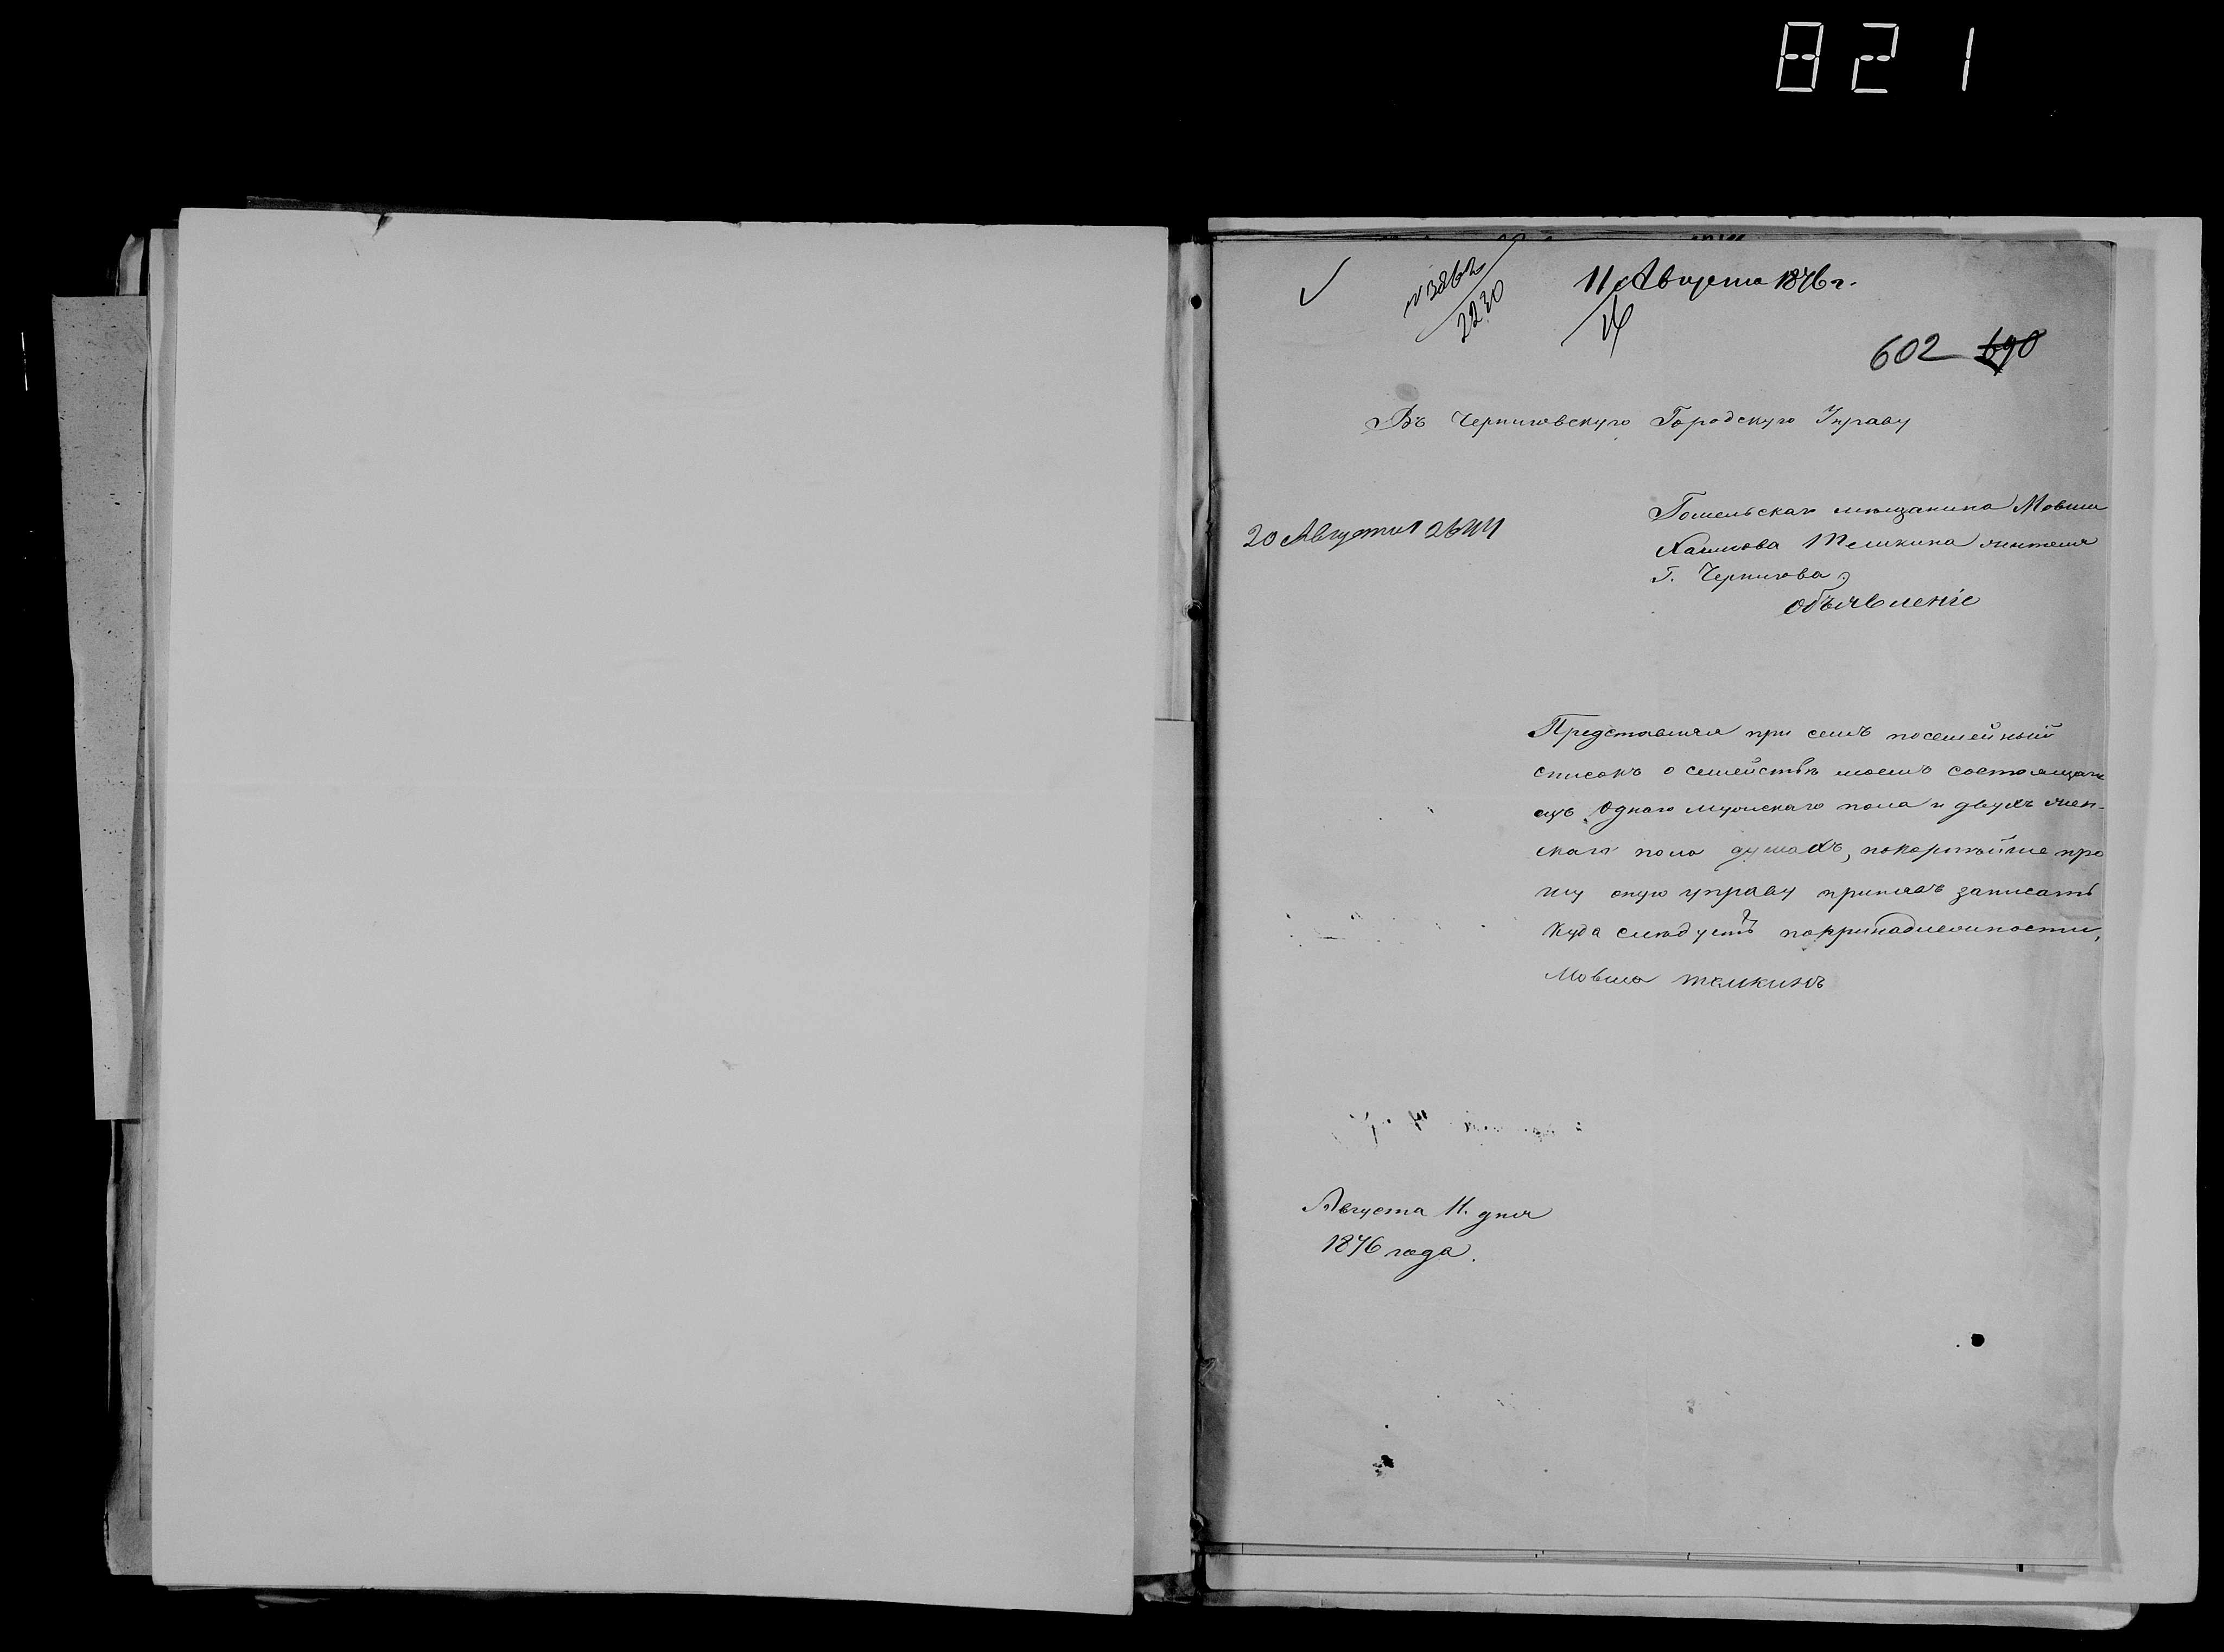 821
11 Августа 1876 г.
14
2230
602 690
Въ Черниговскую Городскую Управу
20 Августа
Гомельскаго мещанина Мовши
Хаимова Темкина жителя
Г. Чернигова
Объявленіе
Представляя при семъ посемейный
списокъ о семействѣ моемъ состоящаго
одного мужскаго пола и двухъ жен-
скаго пола душахъ, покорнѣйше про
шу оную управу принявъ записать
Куда следуетъ
Мовша темкинъ
Августа 11. дня
1876 года.